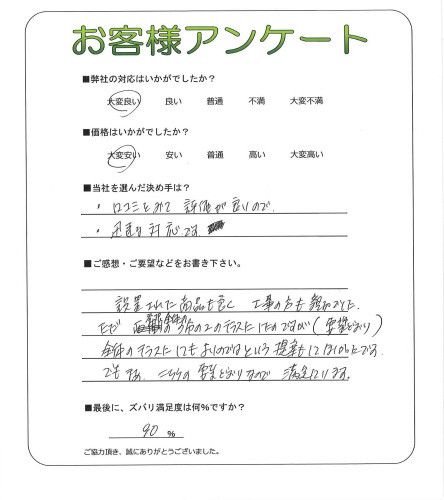 お客様アンケート
■弊社の対応はいかがでしたか?
大変良い 良い 普通 不満 大変不満
■価格はいかがでしたか?
大変安い 安い 普通 高い 大変高い
■当社を選んだ決め手は?
・口コミをみて 評価が良いので、
・迅速な対応です
■ご感想・ご要望などをお書き下さい。
設置された商品も良く 工事の方も親切でした。
ただ 全体の 3分の2のテラスにしたのですが(要望どおり)
全体のテラスにしてもよいのではという提案もしてほしかったです。
でもまあ、こちらの要望どおりなので 満足しています。
■最後に、ズバリ満足度は何%ですか?
90 %
ご協力頂き、誠にありがとうございました。